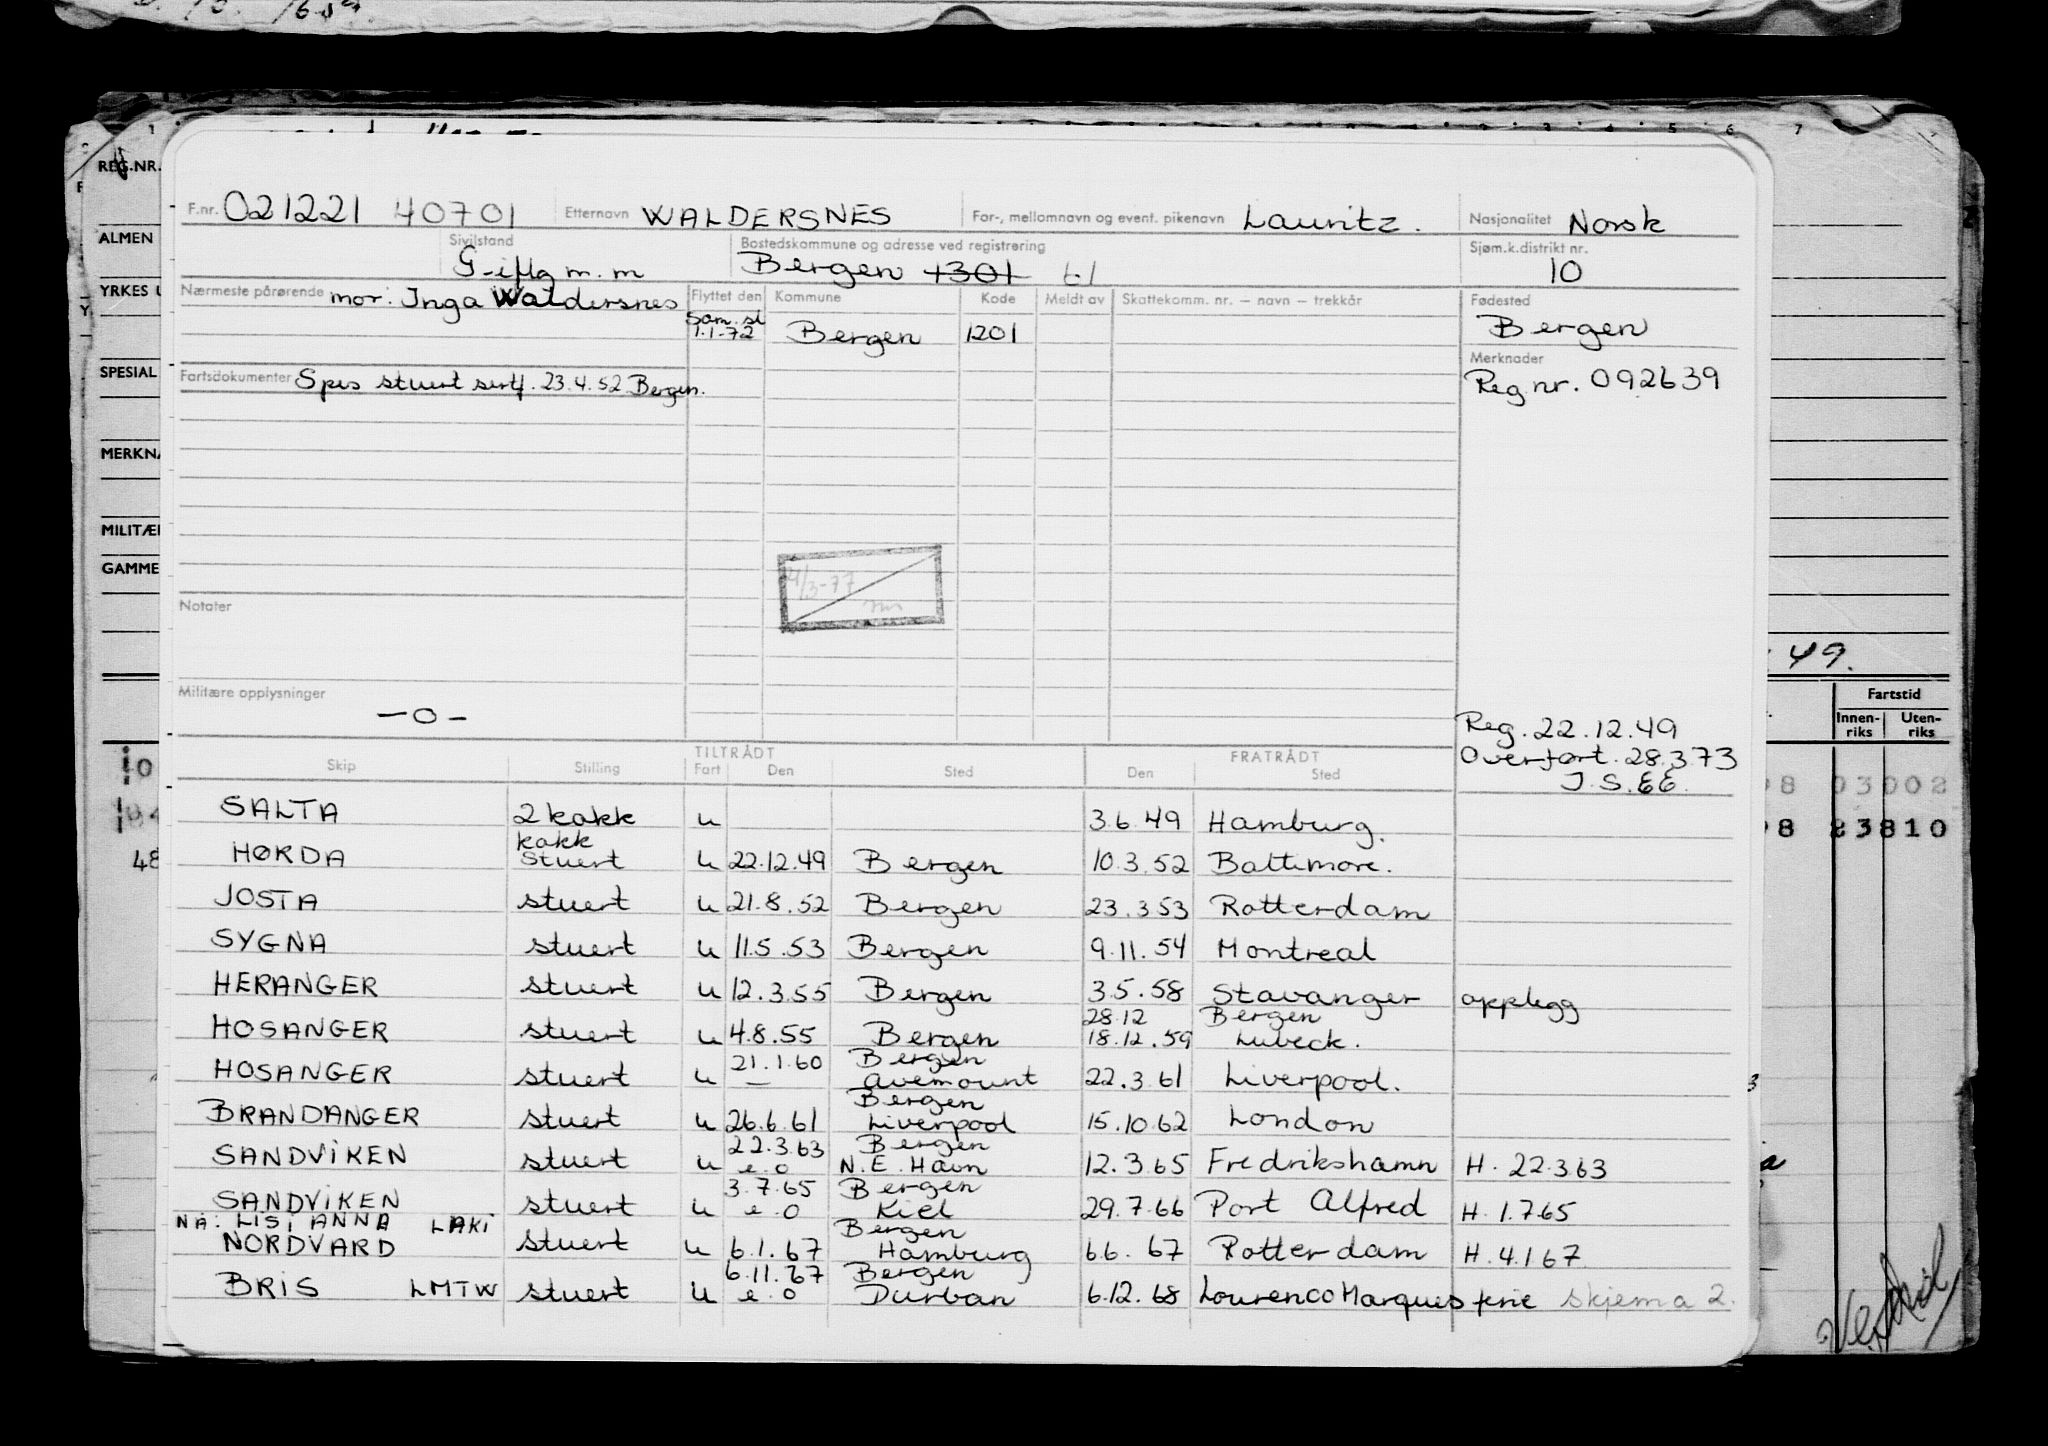 REG.NR.
ALMEN
YRKES
SPESIAL
MERKNA
MILITÆR
GAMME
F.nr. 021221 40701 Etternavn WALDERSNES For-, mellomnavn og event. pikenavn Lauritz. Nasjonalitet Norsk
Sivilstand G-ift m.m Bostedskommune og adresse ved registrering Bergen 1301 Sjøm.k.distrikt nr. 10
Nærmeste pårørende mor: Inga Waldersnes Flyttet den Kommune Kode Meldt av Skattekomm. nr. – navn – trekkår Fødested
Sam. sl 1.1-72 Bergen 1201 Bergen
Merknader
Fartsdokumenter Spes stuert sertf. 23.4.52 Bergen. Reg nr. 092639
4/3-77
Notater
49.
Militære opplysninger
—o—
Fartstid
Innenriks Utenriks
Reg. 22.12.49
Overført. 28.3.73
J.S.EE.
TILTRÅDT FRATRÅDT
Skip Stilling Fart Den Sted Den Sted
SALTA 2 kokk u 3.6.49 Hamburg.
HØRDA kokk stuert u 22.12.49 Bergen 10.3.52 Baltimore.
JOSTA stuert u 21.8.52 Bergen 23.3.53 Rotterdam
SYGNA stuert u 11.5.53 Bergen 9.11.54 Montreal
HERANGER stuert u 12.3.55 Bergen 3.5.58 Stavanger opplegg
28.12 Bergen
HOSANGER stuert u 4.8.55 Bergen 18.12.59 Lubeck.
21.1.60 Bergen
HOSANGER stuert u — Avemount 22.3.61 Liverpool.
Bergen
BRANDANGER stuert u 26.6.61 Liverpool 15.10.62 London
22.3.63 Bergen
SANDVIKEN stuert u e.o N.E. Havn 12.3.65 Fredrikshamn H. 22.3.63
3.7.65 Bergen
SANDVIKEN stuert u e.o Kiel 29.7.66 Port Alfred H. 1.7.65
NA: LIS, ANNA LAKI Bergen
NORDVARD stuert u 6.1.67 Hamburg 6.6.67 Rotterdam H. 4.1.67
6.11.67 Bergen
BRIS LMTW stuert u e.o Durban 6.12.68 Lourenco Marques ferie skjema 2.
03002
23810
48